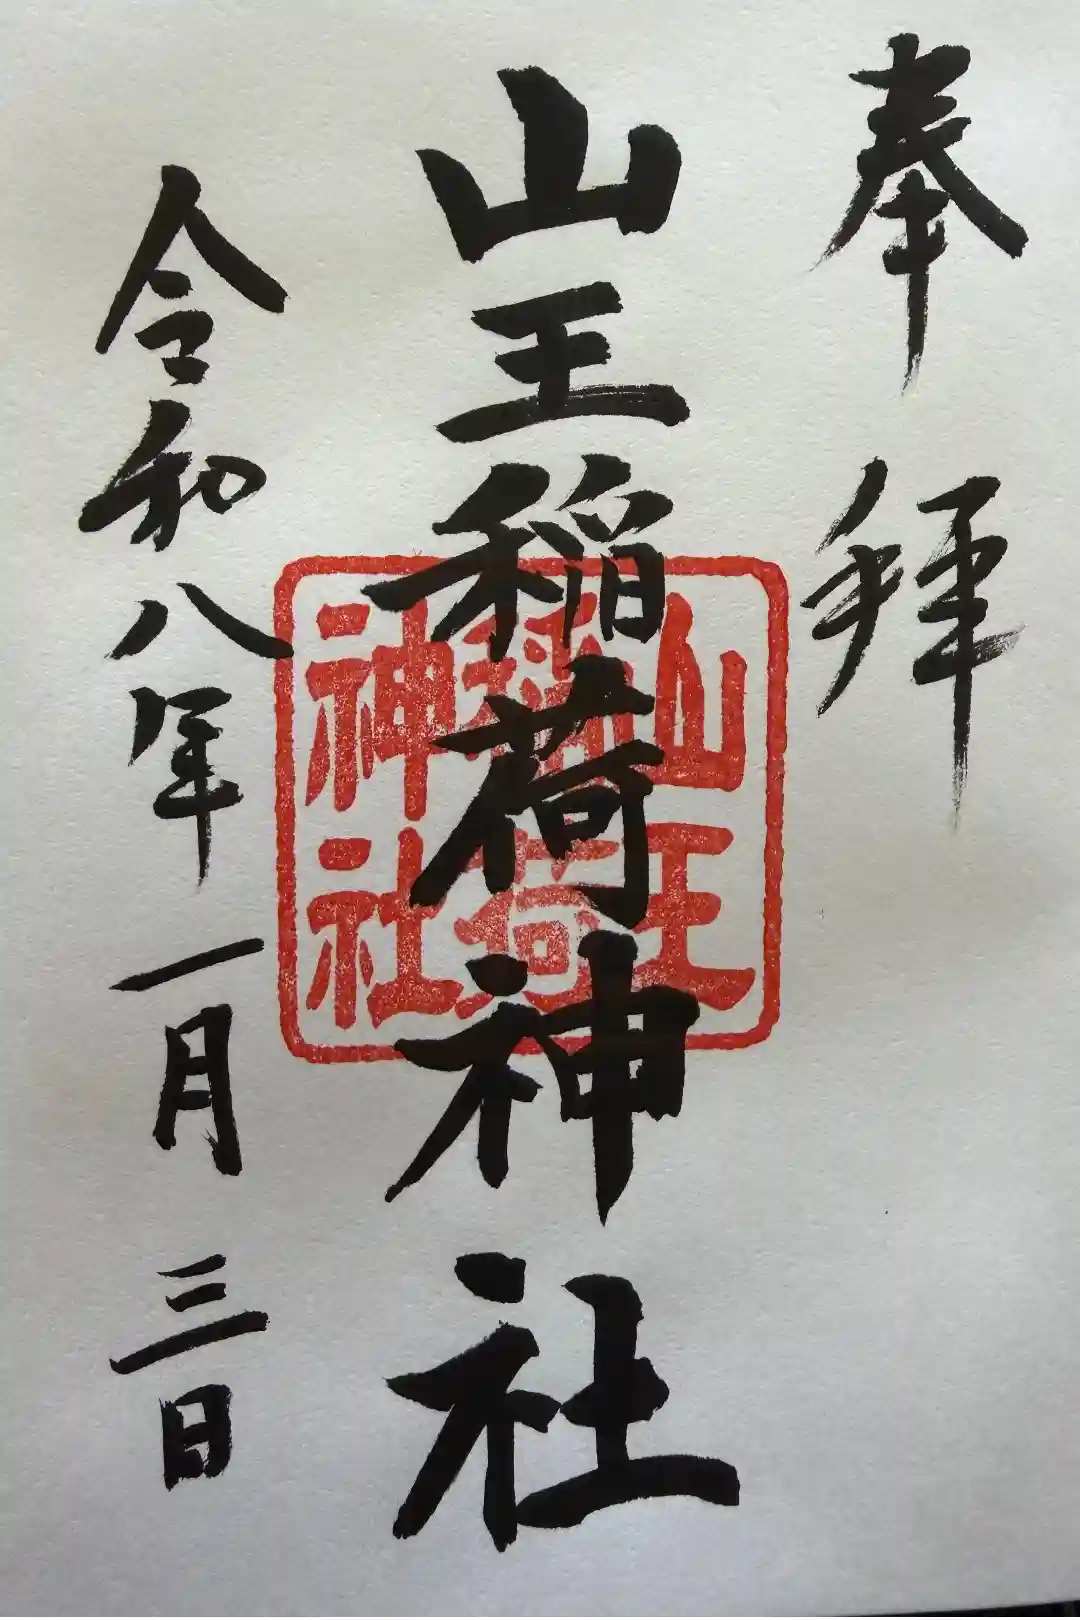 奉拝
山王稲荷神社
令和八年一月三日
山王
稲荷
神社